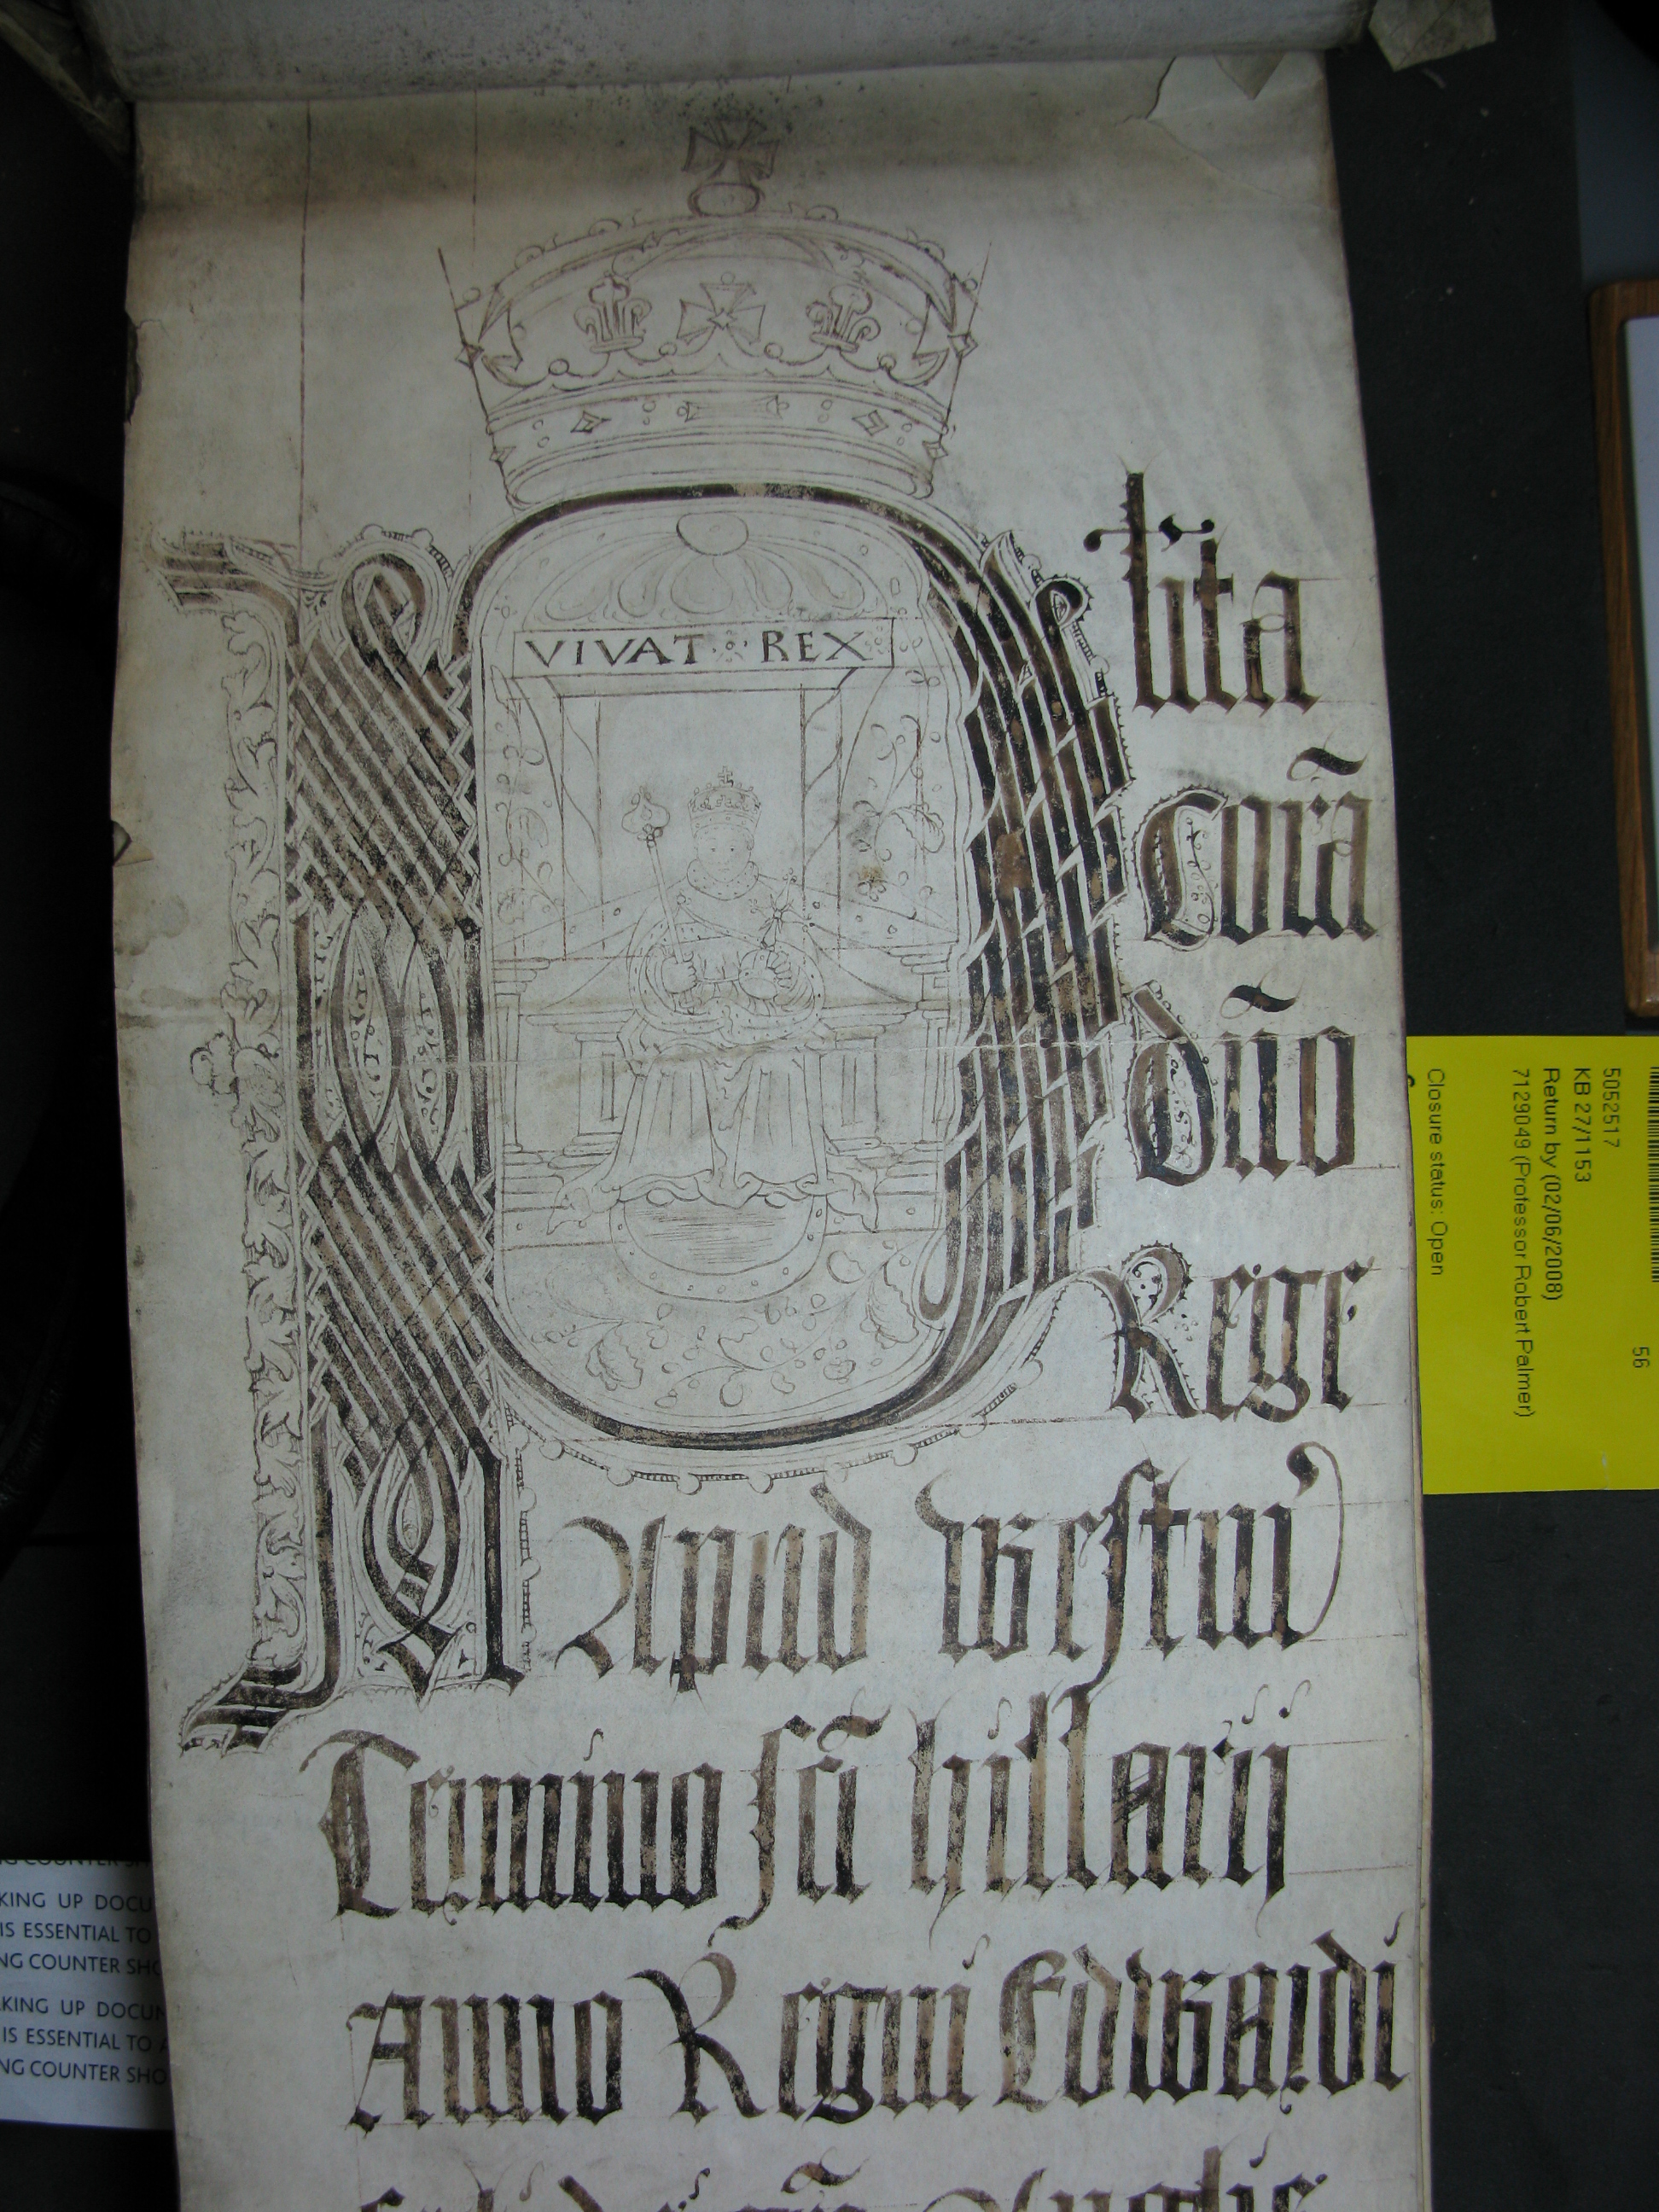 VIVAT REX
Plita
Corā
dño
Rege
Apud Westm̃
Termino sc̃i hillarij
Anno Regni Edwardi
Anglie
5052517
KB 27/1153
Return by (02/06/2008)
7129049 (Professor Robert Palmer)
Closure status: Open
56
KING UP DOCU
IS ESSENTIAL TO
NG COUNTER SHO
KING UP DOCUM
IS ESSENTIAL TO A
NG COUNTER SHO